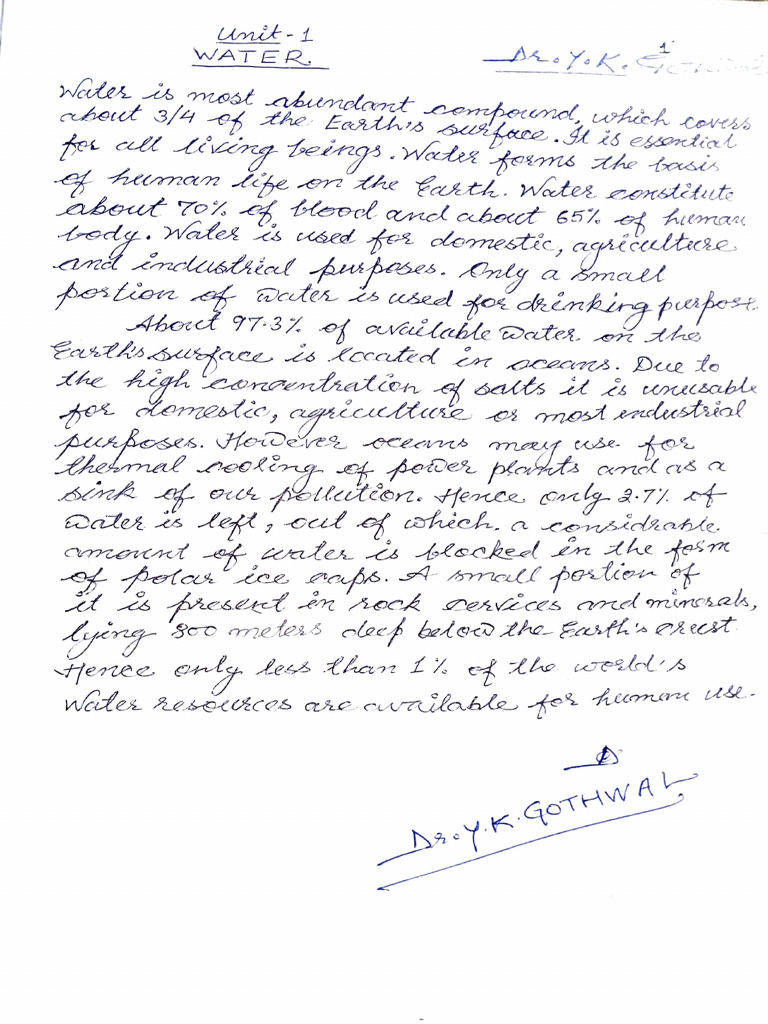 Unit-1
1
WATER.
Dr. Y. K. Gothwal
Water is most abundant compound, which covers
about 3/4 of the Earth's surface. It is essential
for all living beings. Water forms the basis
of human life on the Earth. Water constitute
about 70% of blood and about 65% of human
body. Water is used for domestic, agriculture
and industrial purposes. Only a small
portion of water is used for drinking purpose.
About 97.3% of available water on the
Earth's surface is located in oceans. Due to
the high concentration of salts it is unusable
for domestic, agriculture or most industrial
purposes. However oceans may use for
thermal cooling of power plants and as a
sink of our pollution. Hence only 2.7% of
water is left, out of which. a considrable
amount of water is blocked in the form
of polar ice caps. A small portion of
it is present in rock cervices and minerals,
lying 800 meters deep below the Earth's crust.
Hence only less than 1% of the world's
Water resources are available for human use.
Dr. Y. K. GOTHWAL